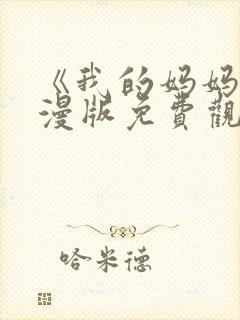 《我的妈妈
漫版免費觀
哈米德